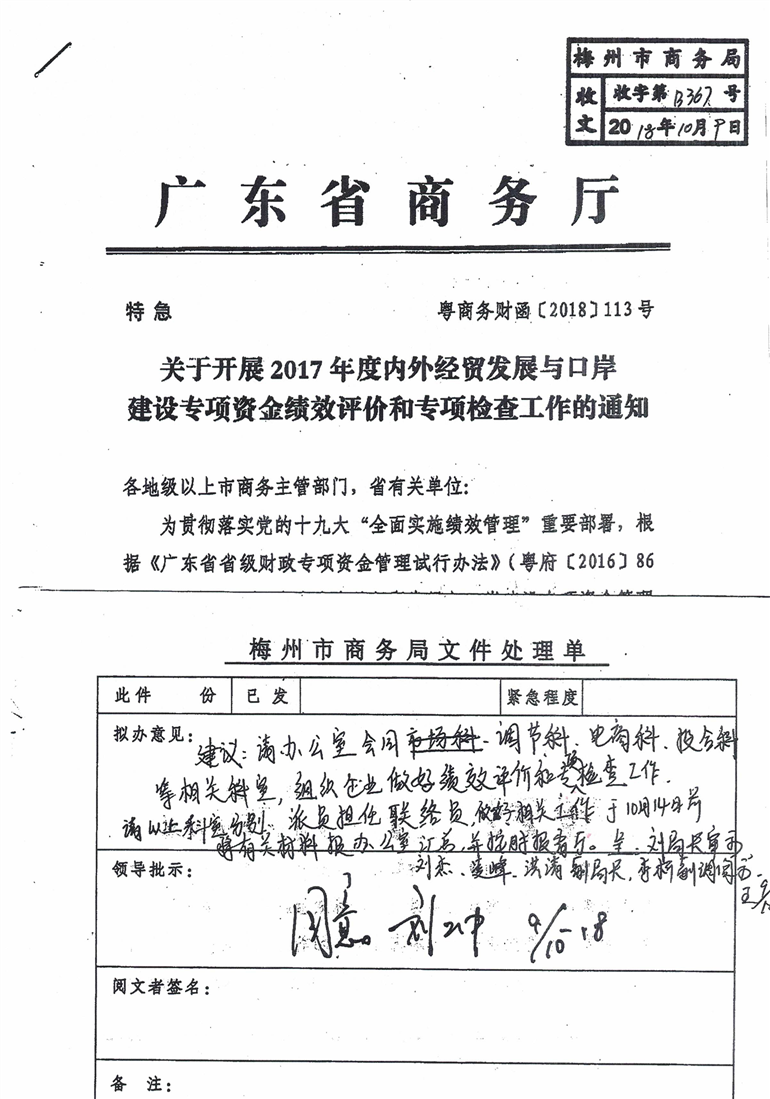 梅州市商务局
收文
收字第B367号
2018年10月9日
广东省商务厅
特急
粤商务财函〔2018〕113号
关于开展2017年度内外经贸发展与口岸
建设专项资金绩效评价和专项检查工作的通知
各地级以上市商务主管部门，省有关单位：
为贯彻落实党的十九大“全面实施绩效管理”重要部署，根
据《广东省省级财政专项资金管理试行办法》（粤府〔2016〕86
梅州市商务局文件处理单
此件 份 已发 紧急程度
拟办意见：
建议：请办公室会同市场科、调节科、电商科、投合科
等相关科室，组织企业做好绩效评价和专项检查工作.
请以上科室分别派员担任联络员,做好相关工作于10月14日前
将有关材料报办公室汇总,并按时报省厅。呈 刘局长审示
刘杰、凌峰、洪清副局长、李 副调阅
领导批示：
同意。刘 9/10-18
阅文者签名：
备 注：